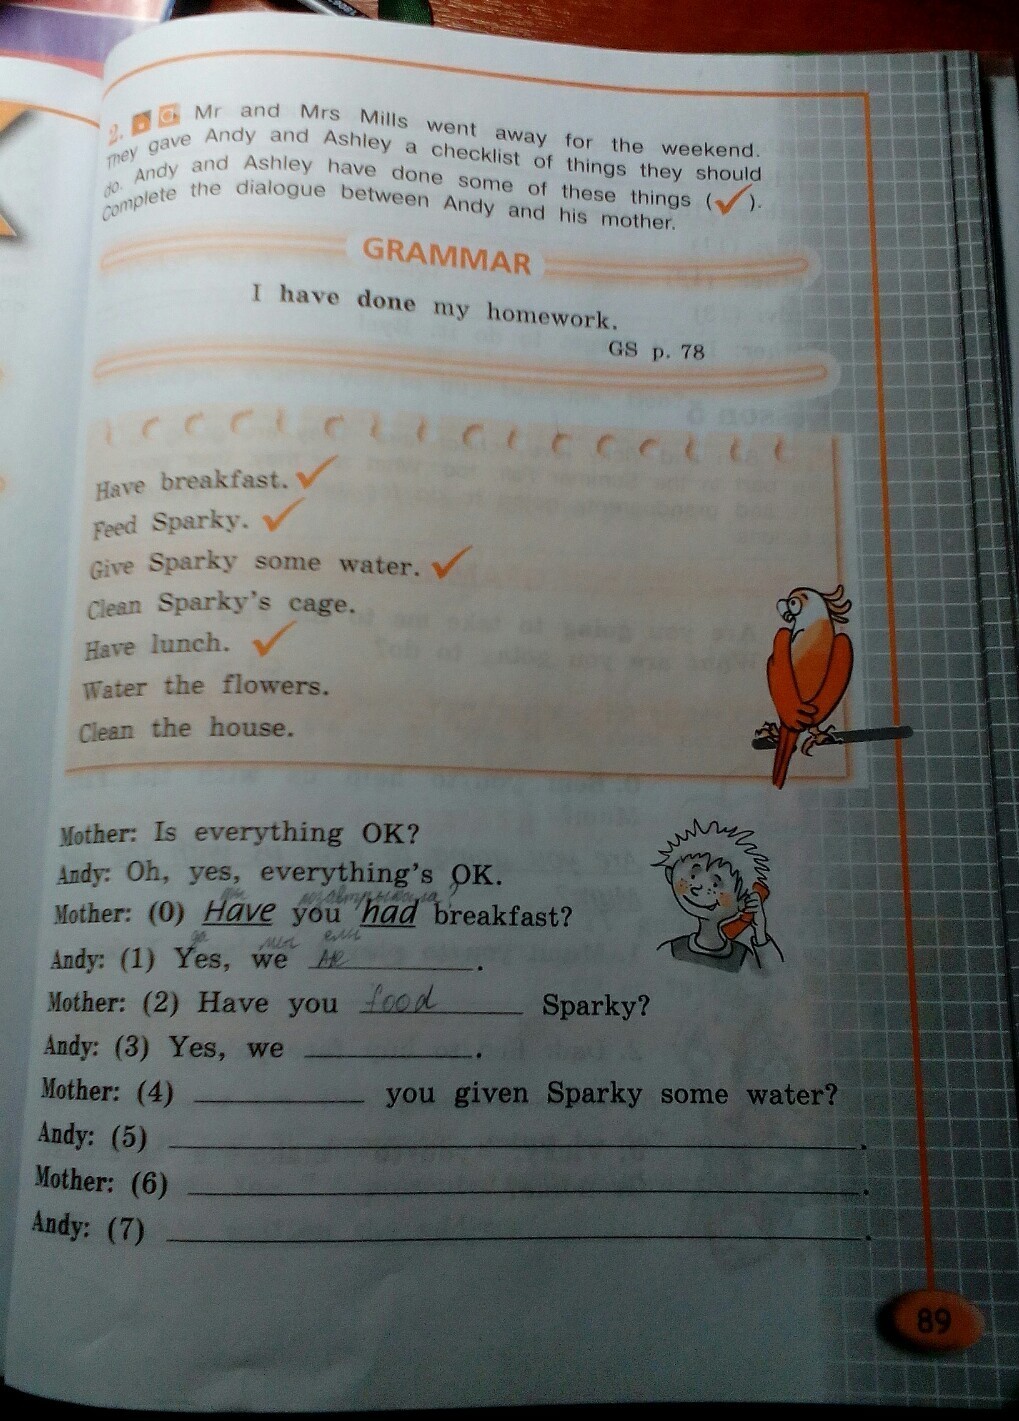 2. Mr and Mrs Mills went away for the weekend.
They gave Andy and Ashley a checklist of things they should
do. Andy and Ashley have done some of these things (✓).
Complete the dialogue between Andy and his mother.
GRAMMAR
I have done my homework.
GS p. 78
Have breakfast. ✓
Feed Sparky. ✓
Give Sparky some water. ✓
Clean Sparky's cage.
Have lunch. ✓
Water the flowers.
Clean the house.
Mother: Is everything OK?
Andy: Oh, yes, everything's OK.
Mother: (0) Have you had breakfast?
да мы ели
Andy: (1) Yes, we ______.
Mother: (2) Have you food Sparky?
Andy: (3) Yes, we ______.
Mother: (4) ______ you given Sparky some water?
Andy: (5) ______.
Mother: (6) ______.
Andy: (7) ______.
89